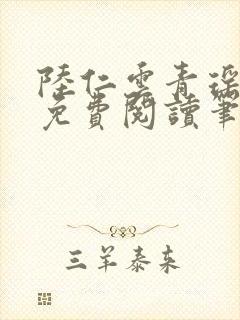 陸仁雲青瑤
免費閱讀筆
三羊泰来